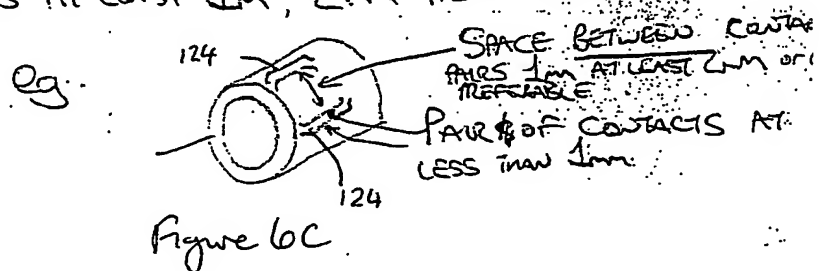 at least 1mm, 2mm
eg.
124
SPACE BETWEEN CONTA
PAIRS 1mm AT LEAST 2mm or
PREFERABLE
PAIRS OF CONTACTS AT
LESS THAN 1mm.
124
Figure 6C